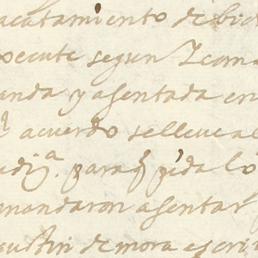 acatamiento de bid
execute segun Zcomo
anda y asentada en
q̃ acuerdo se lleue al
adjᵃ. paraq̃ pida lo
mandaron asentar
gustin de mora escri